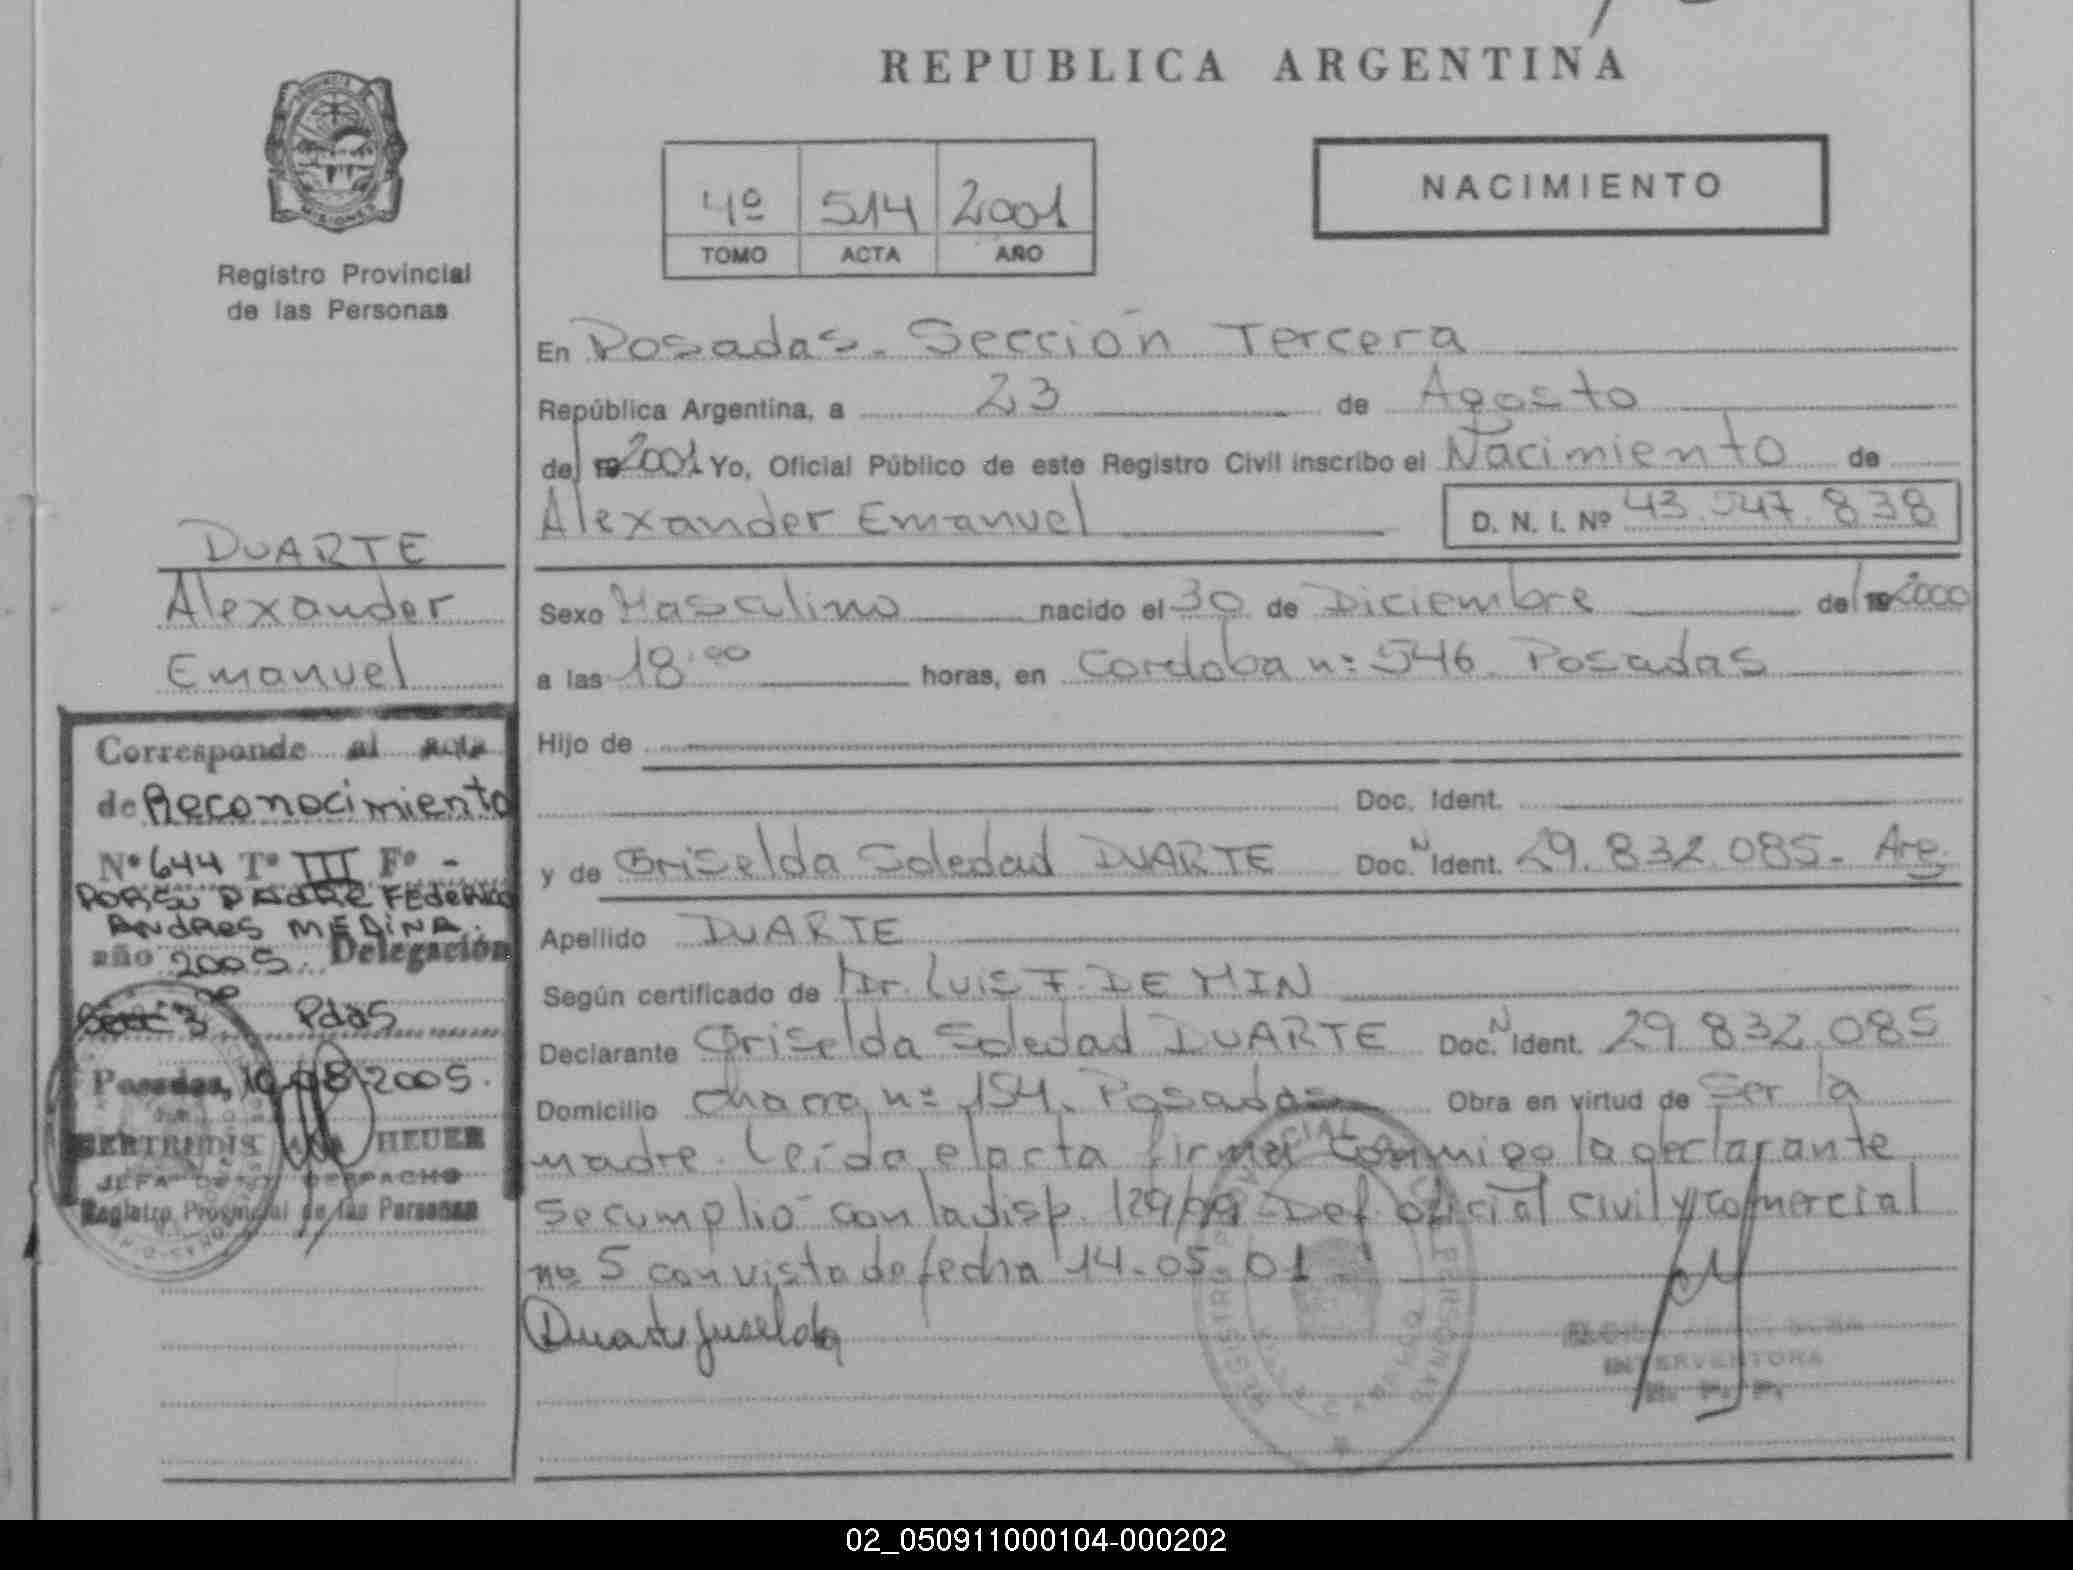 REPUBLICA ARGENTINA
MISIONES
Registro Provincial
de las Personas
4º 514 2001
TOMO ACTA AÑO
NACIMIENTO
En Posadas. Sección Tercera
República Argentina, a 23 de Agosto
del 19 2001 Yo, Oficial Público de este Registro Civil inscribo el Nacimiento de
Alexander Emanuel D. N. I. Nº 43.547.838
DUARTE
Alexander
Emanuel
Sexo Masculino nacido el 30 de Diciembre del 19 2000
a las 18:00 horas, en Cordoba nº 546. Posadas
Hijo de
Doc. Ident.
y de Griselda Soledad DUARTE Doc. N Ident. 29.832.085- Arg.
Apellido DUARTE
Según certificado de Dr. Luis F. DE MIN
Declarante Griselda Soledad DUARTE Doc. N Ident. 29.832.085
Domicilio chacra nº 154. Posadas Obra en virtud de Ser la
madre. Leída el acta firma conmigo la declarante
Se cumplió con la disp. 129/99 - Def. oficial civil y comercial
nº 5 con vista de fecha 14-05-01
Duarte Griselda
INTERVENTORA
Corresponde al acta
de Reconocimiento
Nº 644 Tº III Fº -
POR SU PADRE Federico
ANDRES MEDINA.
año 2005. Delegación
Secc 3ª Pdas
Posadas, 19/08/2005.
HEUER
JEFA DE DESPACHO
Registro Provincial de las Personas
02_050911000104-000202